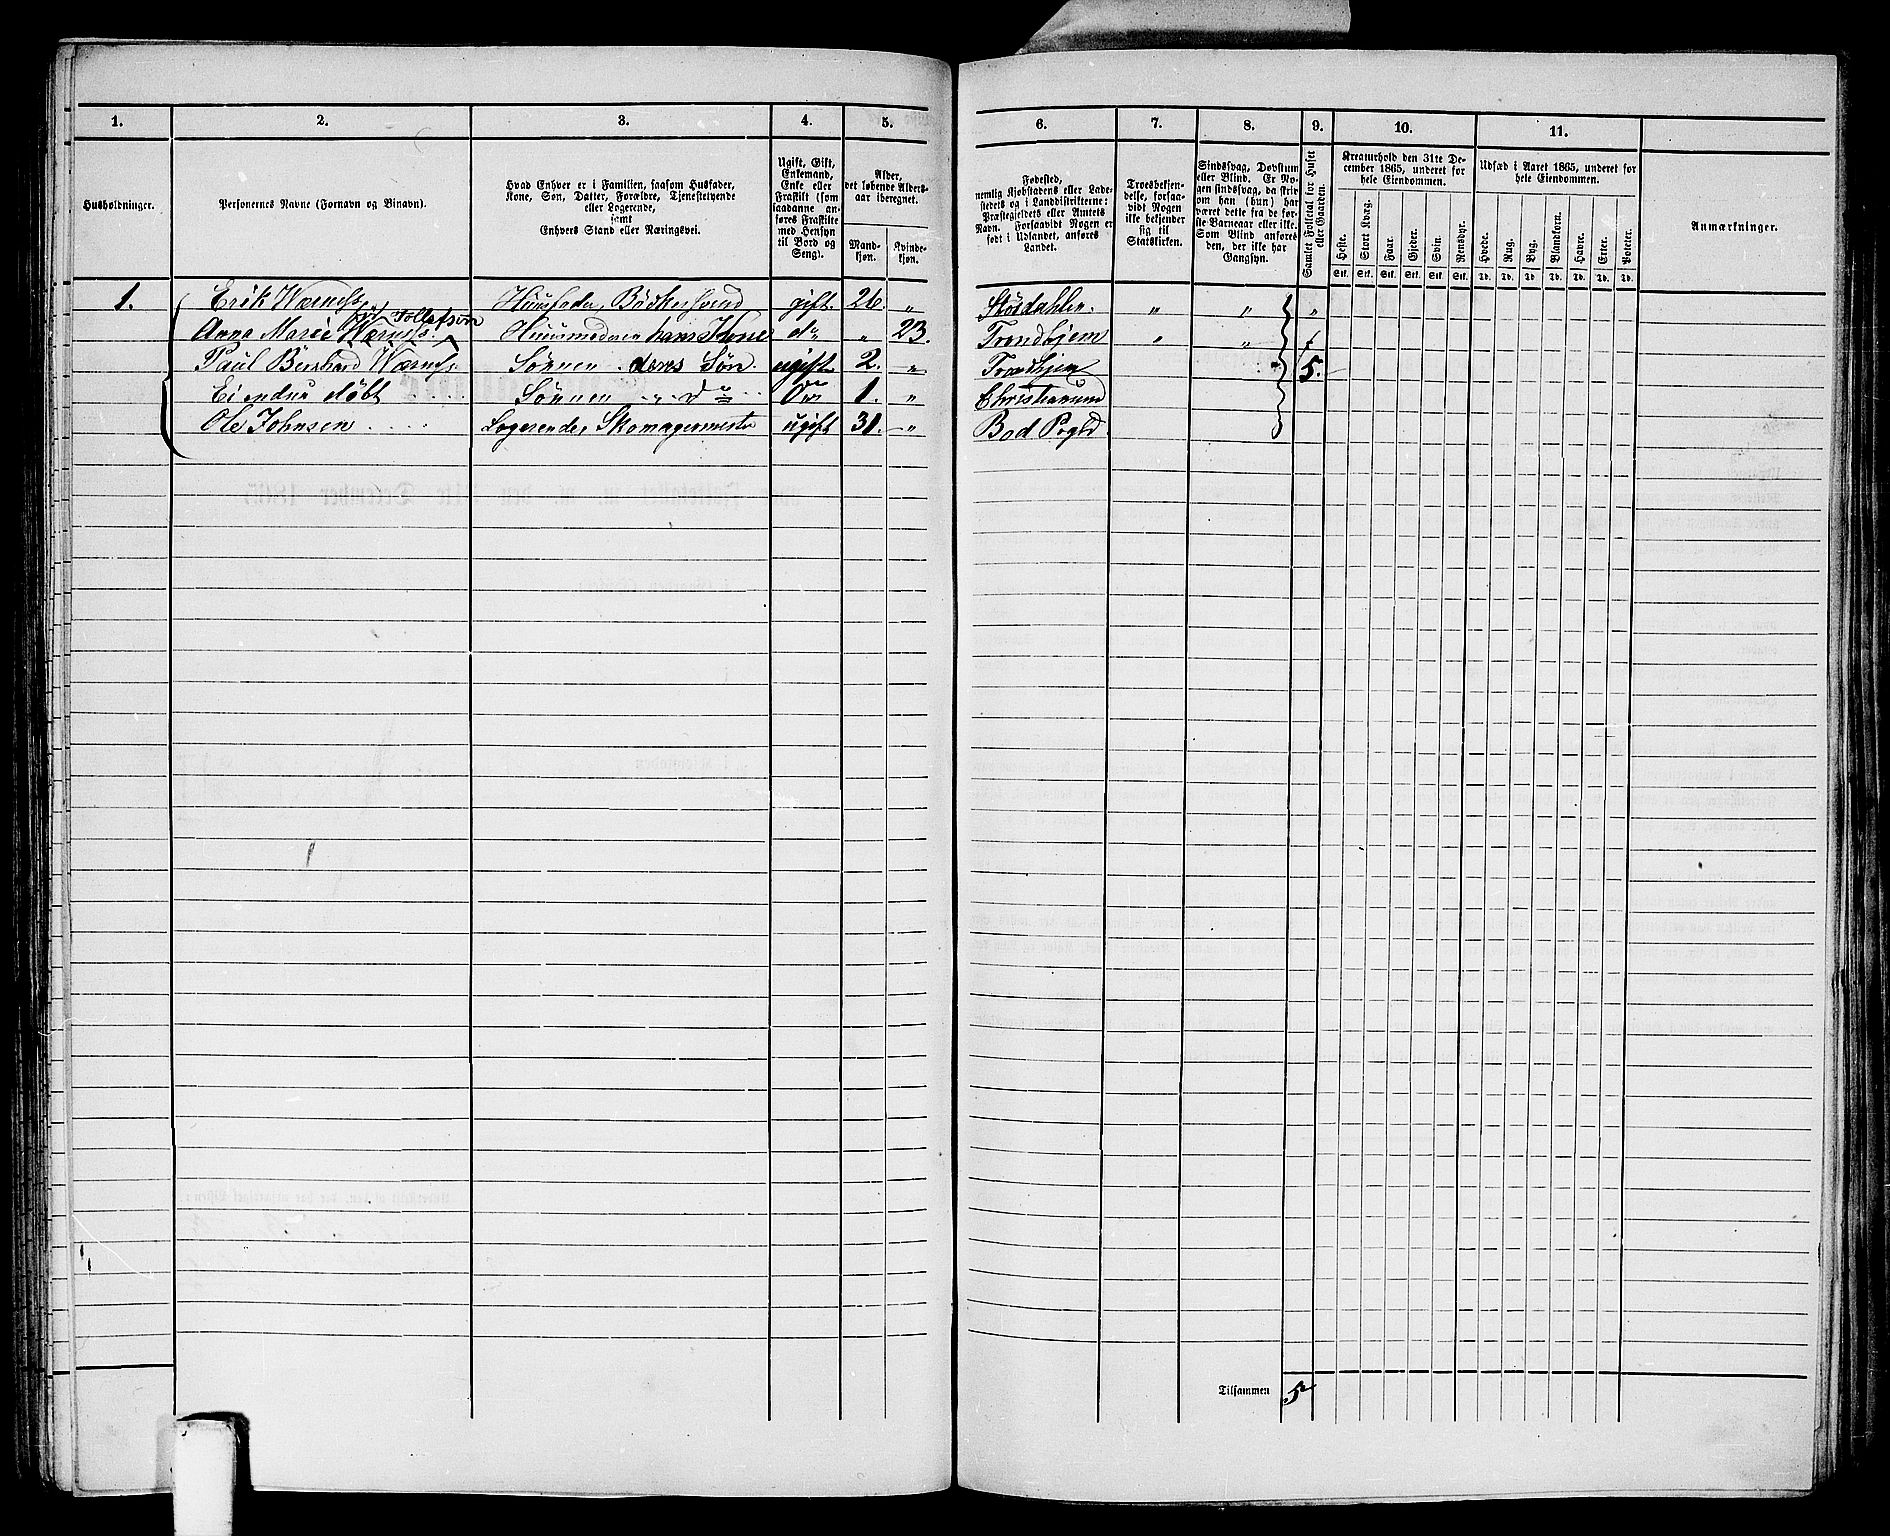 1. 2. 3. 4. 5. 6. 7. 8. 9. 10. 11.
Husholdninger.
Personernes Navne (Fornavn og Binavn).
Hvad Enhver er i Familien, saasom Husfader,
Kone, Søn, Datter, Forældre, Tjenestetyende
eller Logerende,
samt
Enhvers Stand eller Næringsvei.
Ugift, Gift,
Enkemand,
Enke eller
Fraskilt (som
saadanne an-
føres Fraskilte
med Hensyn
til Bord og
Seng).
Alder,
det løbende Alders-
aar iberegnet.
Mand-
kjøn.
Kvinde-
kjøn.
Fødested,
nemlig Kjøbstadens eller Lade-
stedets og i Landdistrikterne:
Præstegjeldets eller Amtets
Navn. Forsaavidt Nogen er
født i Udlandet, anføres
Landet.
Troesbekjen-
delse, forsaa-
vidt Nogen
ikke bekjender
sig til
Statskirken.
Sindssvag, Døvstum
eller Blind. Er No-
gen sindssvag, da skriv
om han (hun) har
været dette fra de før-
ste Barneaar eller ikke.
Som Blind anføres
den, der ikke har
Gangsyn.
Samlet Folketal for Huset
eller Gaarden.
Kreaturhold den 31te De-
cember 1865, underet for
hele Eiendommen.
Heste. Stort Kvæg. Faar. Gjeder. Svin. Rensdyr.
Stk. Stk. Stk. Stk. Stk. Stk.
Udsæd i Aaret 1865, underet for
hele Eiendommen.
Hvede. Rug. Byg. Blandkorn. Havre. Erter. Poteter.
Td. Td. Td. Td. Td. Td. Td.
Anmærkninger.
1. Erik Wærness Huusfader, Bäckersvend gift. 26. " Stördahlen. " " "
Tollefsøn
Anna Marie Wærness. Huusmoderen hans Kone do " 23. Trondhjem " "
Paul Bernhard Wærness. Sønnen deres Søn. ugift 2. " Trondhjem 5.
Ei endnu døbt Sønnen do 1. " Christiansund
Ole Johnsen Logerende, Skomagermester ugift 31. " Bod Pregld.
Tilsammen 5